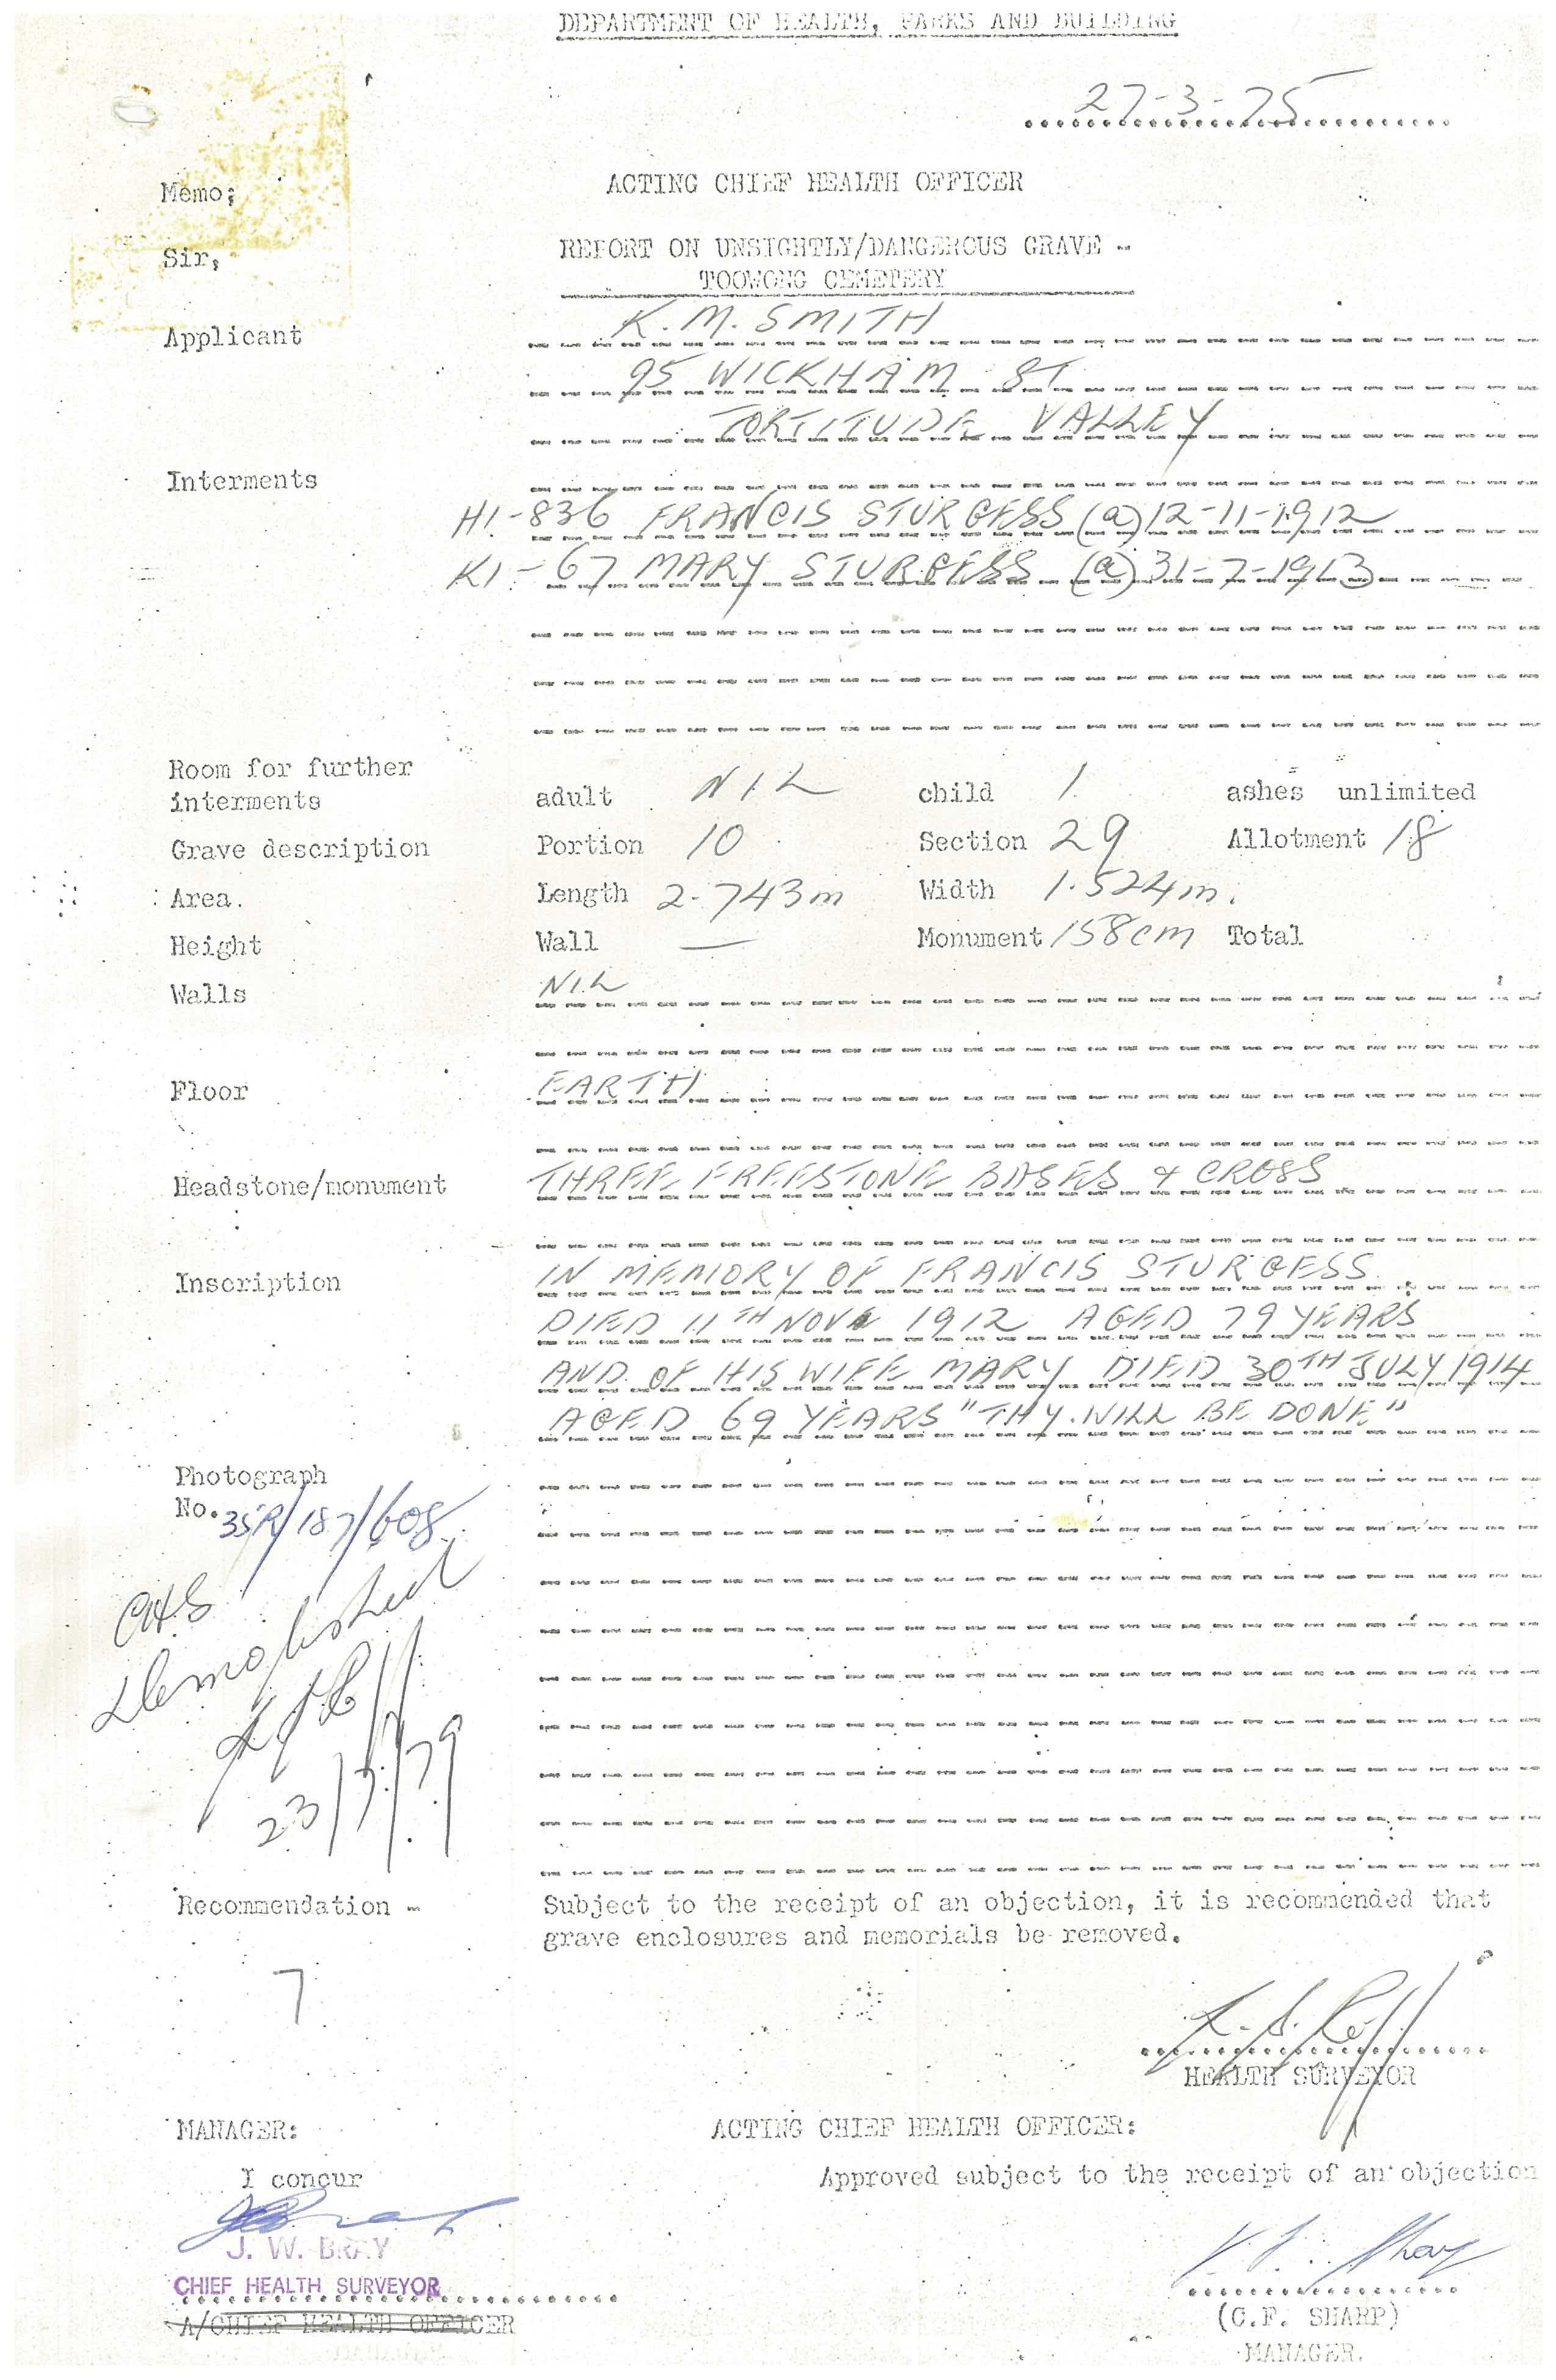 DEPARTMENT OF HEALTH, PARKS AND BUILDING
27-3-75
Memo;
ACTING CHIEF HEALTH OFFICER
Sir,
REPORT ON UNSIGHTLY/DANGEROUS GRAVE -
TOOWONG CEMETERY
Applicant K. M. SMITH
95 WICKHAM ST
FORTITUDE VALLEY
Interments
H1-836 FRANCIS STURGESS (a) 12-11-1912
K1-67 MARY STURGESS (a) 31-7-1913
Room for further
interments adult NIL child 1 ashes unlimited
Grave description Portion 10 Section 29 Allotment 18
Area. Length 2.743m Width 1.524m.
Height Wall — Monument 158cm Total
Walls NIL
Floor EARTH
Headstone/monument THREE FREESTONE BASES & CROSS
Inscription IN MEMORY OF FRANCIS STURGESS
DIED 11TH NOV 1912 AGED 79 YEARS
AND OF HIS WIFE MARY DIED 30TH JULY 1914
AGED 69 YEARS "THY WILL BE DONE"
Photograph
No. 35R/187/608
CHS
Demolished
23/7/79
Recommendation - Subject to the receipt of an objection, it is recommended that
grave enclosures and memorials be removed.
7
HEALTH SURVEYOR
MANAGER: ACTING CHIEF HEALTH OFFICER:
I concur Approved subject to the receipt of an objection
J. W. BRAY
CHIEF HEALTH SURVEYOR
A/CHIEF HEALTH OFFICER
(C.F. SHARP)
MANAGER.